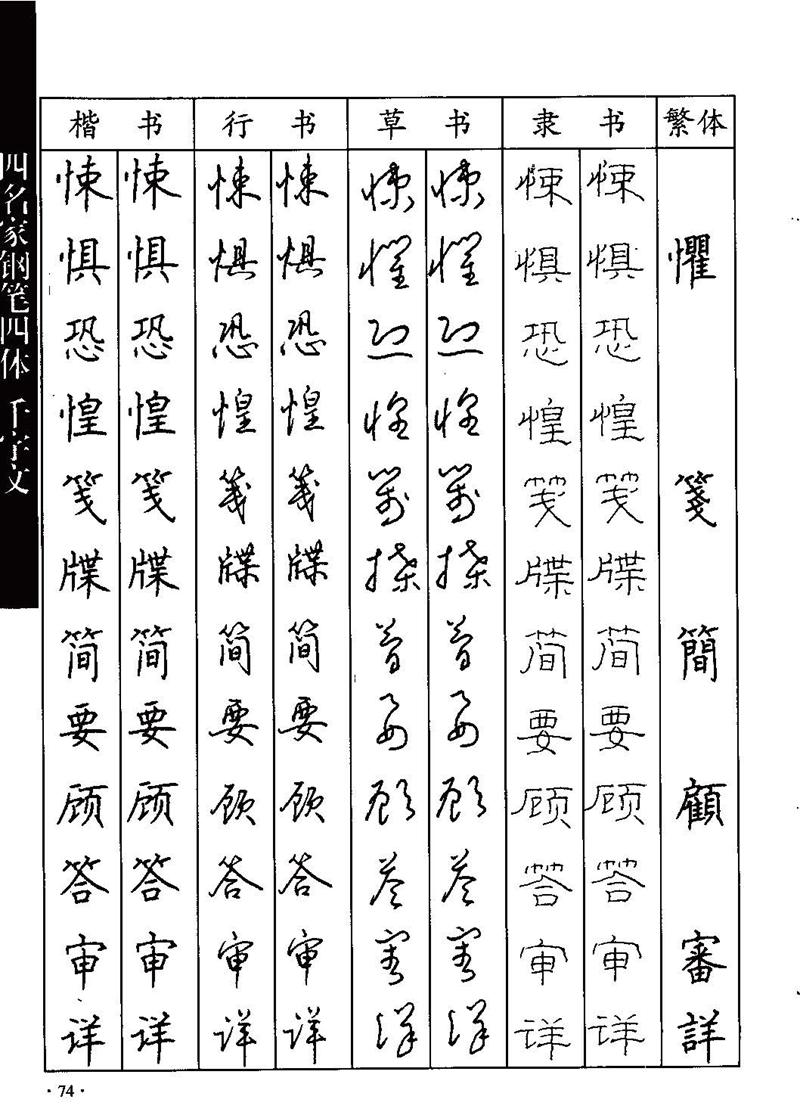 四名家钢笔四体 千字文
楷书 行书 草书 隶书 繁体
悚 悚 悚 悚 悚 悚 悚 悚
惧 惧 惧 惧 惧 惧 惧 惧 懼
恐 恐 恐 恐 恐 恐 恐 恐
惶 惶 惶 惶 惶 惶 惶 惶
笺 笺 笺 笺 笺 笺 笺 笺 箋
牒 牒 牒 牒 牒 牒 牒 牒
简 简 简 简 简 简 简 简 簡
要 要 要 要 要 要 要 要
顾 顾 顾 顾 顾 顾 顾 顾 顧
答 答 答 答 答 答 答 答
审 审 审 审 审 审 审 审 審
详 详 详 详 详 详 详 详 詳
·74·